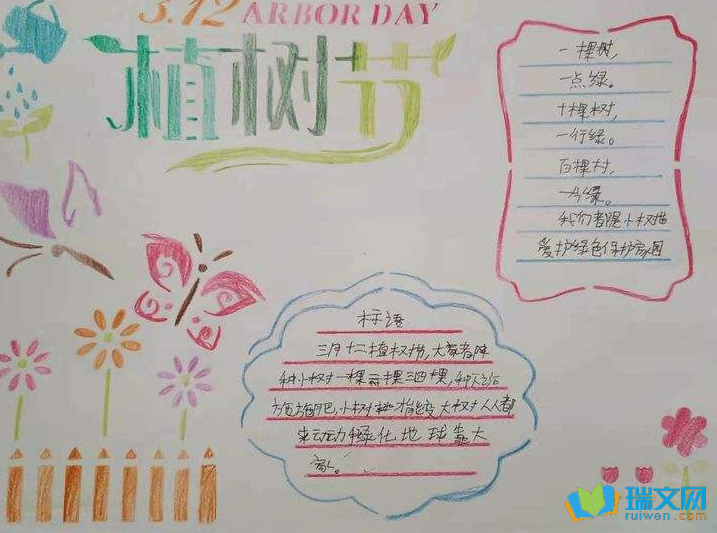 3.12 ARBOR DAY
植树节
一棵树,
一点绿。
十棵树,
一行绿。
百棵树,
一片绿。
我们都是小树苗
爱护绿色保护家园
标语
三月十二植树节,大家都来
种小树一棵两棵三四棵,种下后
施施肥,小树 大树人人都
来动动绿化地球靠大
家。
瑞文网
ruiwen.com